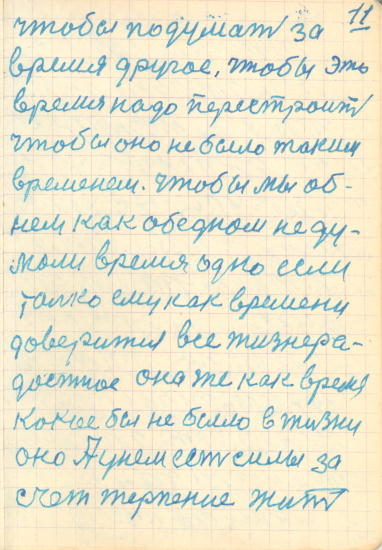 11
чтобы подумат за
время другое, чтобы это
время надо перестроит
чтобы оно не было таким
временем. чтобы мы об-
нем как обедном не ду-
мали время одно если
толко ему как времени
доверится все жизнера-
достное она же как время
какое бы не было в жизни
оно А унем ест силы за
счет терпение жит